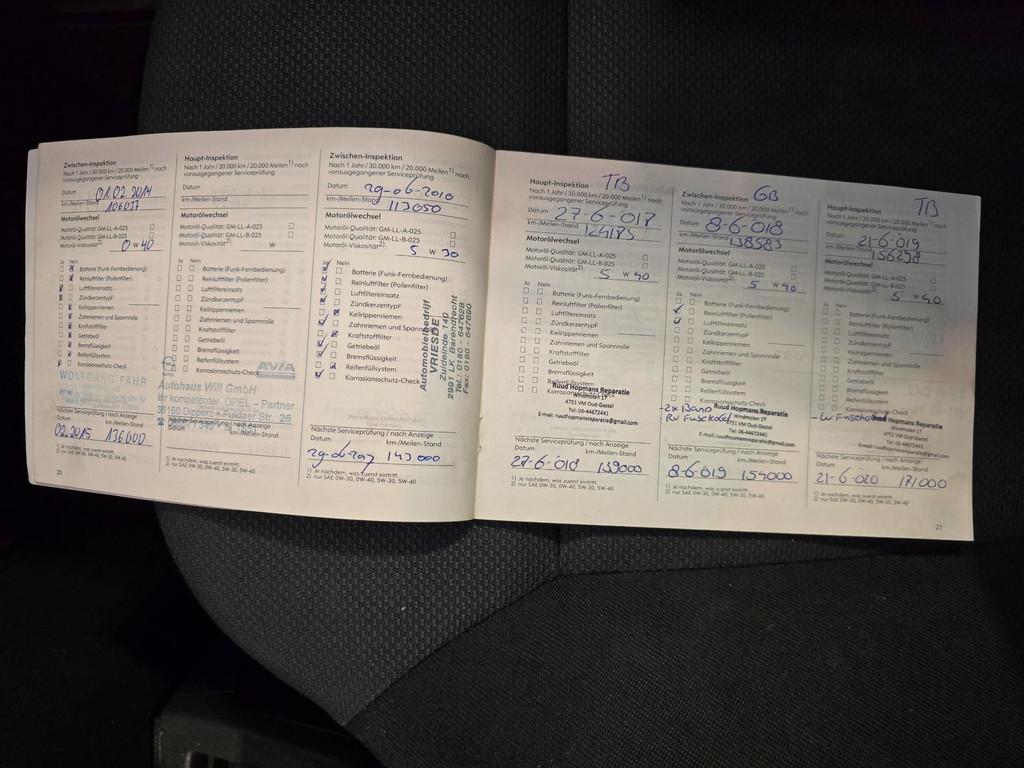 Zwischen-Inspektion
Nach 1 Jahr / 30.000 km / 20.000 Meilen 1) nach
vorausgegangener Serviceprüfung
Datum 01.02.2014
km-/Meilen-Stand 106037
Motorölwechsel
Motoröl-Qualität: GM-LL-A-025
Motoröl-Qualität: GM-LL-B-025
Motoröl-Viskosität 2): 0 W 40
Ja Nein
Batterie (Funk-Fernbedienung)
Reinluftfilter (Pollenfilter)
Luftfiltereinsatz
Zündkerzentyp
Keilrippenriemen
Zahnriemen und Spannrolle
Kraftstofffilter
Getriebeöl
Bremsflüssigkeit
Reifenfüllsystem
Korrosionsschutz-Check
WOLFGANG FAHR
Nächste Serviceprüfung / nach Anzeige
Datum km-/Meilen-Stand
02.2015 136000
1) Je nachdem, was zuerst eintritt.
2) nur SAE 0W-30, 0W-40, 5W-30, 5W-40
20
Haupt-Inspektion
Nach 1 Jahr / 30.000 km / 20.000 Meilen 1) nach
vorausgegangener Serviceprüfung
Datum
km-/Meilen-Stand
Motorölwechsel
Motoröl-Qualität: GM-LL-A-025
Motoröl-Qualität: GM-LL-B-025
Motoröl-Viskosität 2): W
Ja Nein
Batterie (Funk-Fernbedienung)
Reinluftfilter (Pollenfilter)
Luftfiltereinsatz
Zündkerzentyp
Keilrippenriemen
Zahnriemen und Spannrolle
Kraftstofffilter
Getriebeöl
Bremsflüssigkeit
Reifenfüllsystem
Korrosionsschutz-Check
AVIA
Autohaus Will GmbH
Ihr kompetenter OPEL - Partner
36160 Dipperz · Fuldaer Str. 26
Nächste Serviceprüfung / nach Anzeige
Datum km-/Meilen-Stand
1) Je nachdem, was zuerst eintritt.
2) nur SAE 0W-30, 0W-40, 5W-30, 5W-40
Zwischen-Inspektion
Nach 1 Jahr / 30.000 km / 20.000 Meilen 1) nach
vorausgegangener Serviceprüfung
Datum 29-06-2016
km-/Meilen-Stand 113050
Motorölwechsel
Motoröl-Qualität: GM-LL-A-025
Motoröl-Qualität: GM-LL-B-025
Motoröl-Viskosität 2): 5 W 30
Ja Nein
Batterie (Funk-Fernbedienung)
Reinluftfilter (Pollenfilter)
Luftfiltereinsatz
Zündkerzentyp
Keilrippenriemen
Zahnriemen und Spannrolle
Kraftstofffilter
Getriebeöl
Bremsflüssigkeit
Reifenfüllsystem
Korrosionsschutz-Check
Automobielbedrijf
VRIESDE
Zuideinde 14D
2991 LK Barendrecht
Tel.: 0180 - 647628
Fax: 0180 - 647690
Nächste Serviceprüfung / nach Anzeige
Datum km-/Meilen-Stand
29-06-2017 143000
1) Je nachdem, was zuerst eintritt.
2) nur SAE 0W-30, 0W-40, 5W-30, 5W-40
Haupt-Inspektion TB
Nach 1 Jahr / 30.000 km / 20.000 Meilen 1) nach
vorausgegangener Serviceprüfung
Datum 27-6-017
km-/Meilen-Stand 124175
Motorölwechsel
Motoröl-Qualität: GM-LL-A-025
Motoröl-Qualität: GM-LL-B-025
Motoröl-Viskosität 2): 5 W 40
Ja Nein
Batterie (Funk-Fernbedienung)
Reinluftfilter (Pollenfilter)
Luftfiltereinsatz
Zündkerzentyp
Keilrippenriemen
Zahnriemen und Spannrolle
Kraftstofffilter
Getriebeöl
Bremsflüssigkeit
Reifenfüllsystem
Korrosionsschutz-Check
Ruud Hopmans Reparatie
Windmolen 17
4751 VM Oud-Gastel
Tel: 06-44672441
E-mail: ruudhopmansreparatie@gmail.com
Nächste Serviceprüfung / nach Anzeige
Datum km-/Meilen-Stand
27-6-018 139000
1) Je nachdem, was zuerst eintritt.
2) nur SAE 0W-30, 0W-40, 5W-30, 5W-40
Zwischen-Inspektion GB
Nach 1 Jahr / 30.000 km / 20.000 Meilen 1) nach
vorausgegangener Serviceprüfung
Datum 8-6-018
km-/Meilen-Stand 138583
Motorölwechsel
Motoröl-Qualität: GM-LL-A-025
Motoröl-Qualität: GM-LL-B-025
Motoröl-Viskosität 2): 5 W 40
Ja Nein
Batterie (Funk-Fernbedienung)
Reinluftfilter (Pollenfilter)
Luftfiltereinsatz
Zündkerzentyp
Keilrippenriemen
Zahnriemen und Spannrolle
Kraftstofffilter
Getriebeöl
Bremsflüssigkeit
Reifenfüllsystem
Ruud Hopmans Reparatie
Windmolen 17
4751 VM Oud-Gastel
Tel: 06-44672441
E-mail: ruudhopmansreparatie@gmail.com
Nächste Serviceprüfung / nach Anzeige
Datum km-/Meilen-Stand
8-6-019 154000
1) Je nachdem, was zuerst eintritt.
2) nur SAE 0W-30, 0W-40, 5W-30, 5W-40
Haupt-Inspektion TB
Nach 1 Jahr / 30.000 km / 20.000 Meilen 1) nach
vorausgegangener Serviceprüfung
Datum 21-6-019
km-/Meilen-Stand 156298
Motorölwechsel
Motoröl-Qualität: GM-LL-A-025
Motoröl-Qualität: GM-LL-B-025
Motoröl-Viskosität 2): 5 W 40
Ja Nein
Batterie (Funk-Fernbedienung)
Reinluftfilter (Pollenfilter)
Luftfiltereinsatz
Zündkerzentyp
Keilrippenriemen
Zahnriemen und Spannrolle
Kraftstofffilter
Getriebeöl
Bremsflüssigkeit
Reifenfüllsystem
Korrosionsschutz-Check
Hopmans Reparatie
Windmolen 17
4751 VM Oud-Gastel
Tel: 06-44672441
Nächste Serviceprüfung / nach Anzeige
Datum km-/Meilen-Stand
21-6-020 171000
1) Je nachdem, was zuerst eintritt.
2) nur SAE 0W-30, 0W-40, 5W-30, 5W-40
21